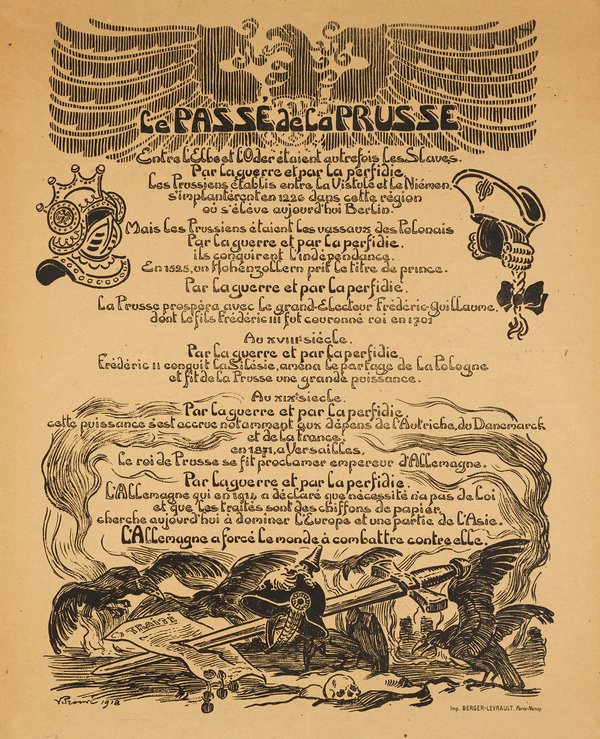 Le PASSÉ de La PRUSSE
Entre l'Elbe et l'Oder étaient autrefois les Slaves.
Par la guerre et par la perfidie,
Les Prussiens établis entre la Vistule et le Niémen,
s'implantèrent en 1226 dans cette région
où s'élève aujourd'hui Berlin.
Mais les Prussiens étaient les vassaux des Polonais
Par la guerre et par la perfidie,
ils conquirent l'indépendance.
En 1525, un Hohenzollern prit le titre de prince.
Par la guerre et par la perfidie,
La Prusse prospéra avec le grand-Electeur Frédéric-Guillaume,
dont le fils Frédéric III fut couronné roi en 1701
Au XVIIIe siècle.
Par la guerre et par la perfidie
Frédéric II conquit la Silésie, amena le partage de la Pologne
et fit de la Prusse une grande puissance.
Au XIXe siecle.
Par la guerre et par la perfidie
cette puissance s'est accrue notamment aux dépens de l'Autriche, du Danemarck
et de la France;
en 1871, a Versailles,
Le roi de Prusse se fit proclamer empereur d'Allemagne.
Par la guerre et par la perfidie.
L'Allemagne qui en 1914 a déclaré que nécessité n'a pas de loi
et que les traités sont des chiffons de papier,
cherche aujourd'hui à dominer l'Europe et une partie de l'Asie.
L'Allemagne a forcé le monde à combattre contre elle.
TRAITÉ
1918
Imp. BERGER-LEVRAULT, Paris-Nancy